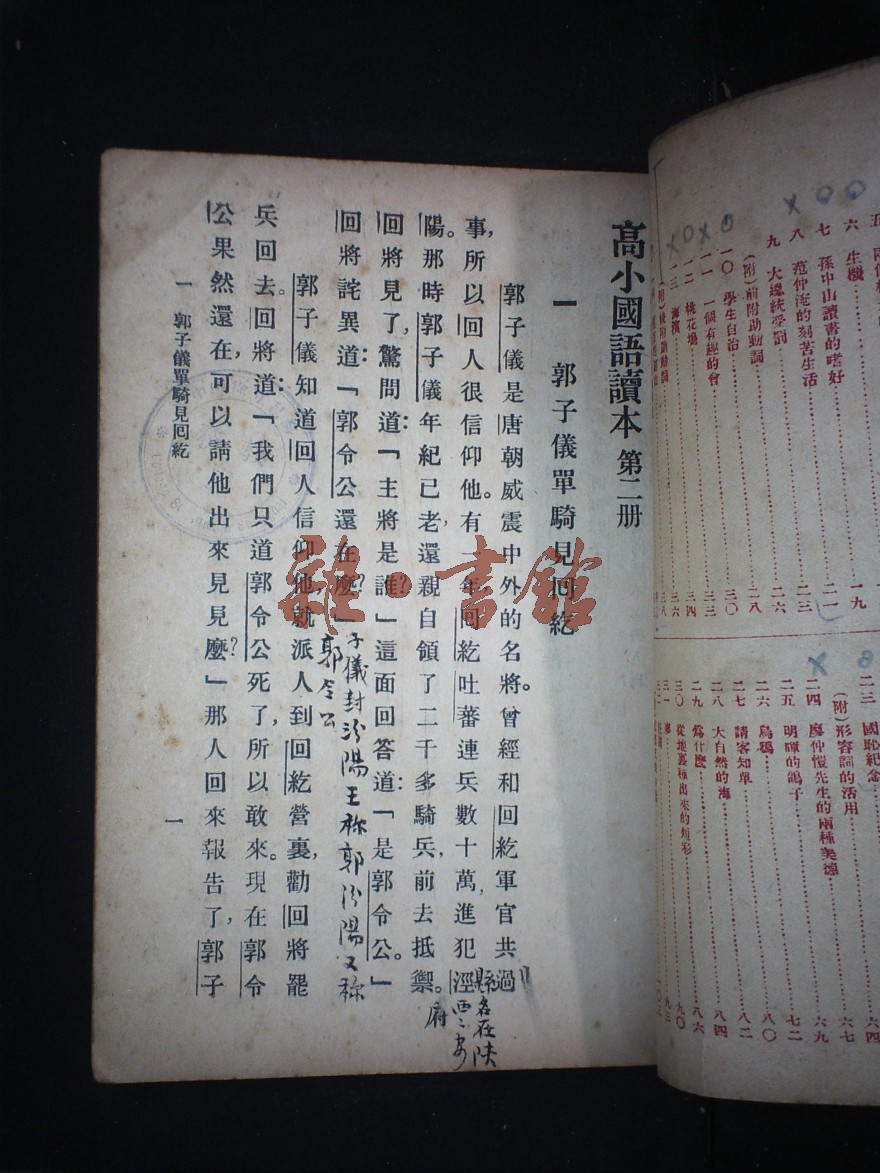 高小國語讀本 第二册
一 郭子儀單騎見回紇
郭子儀是唐朝威震中外的名將。曾經和回紇軍官共過
事,所以回人很信仰他。有一年回紇吐蕃連兵數十萬,進犯涇
陽。那時郭子儀年紀已老,還親自領了二千多騎兵,前去抵禦。
回將見了,驚問道:「主將是誰?」這面回答道:「是郭令公。」
回將詫異道:「郭令公還在麼?」
郭子儀知道回人信仰他,就派人到回紇營裏,勸回將罷
兵回去。回將道:「我們只道郭令公死了,所以敢來。現在郭令
公果然還在,可以請他出來見見麼?」那人回來報告了,郭子
一 郭子儀單騎見回紇
一
縣名在陝
西西安
府
子儀封汾陽王称郭汾陽又称
郭令公
雜·書館
六 生機 一九
七 孫中山讀書的嗜好 二一
八 范仲淹的刻苦生活
九 大總統受罰 二六
(附)前附助動詞 二八
一〇 學生自治 三〇
一一 一個有趣的會 三三
一二 桃花塢 三四
一三 海濱 三六
二三 國恥紀念 六四
(附)形容詞的活用 六七
二四 廖仲愷先生的兩種美德 六九
二五 明暉的鴿子 七二
二六 烏鴉 八〇
二七 請客知單 八二
二八 大自然的海 八四
二九 為什麼 八六
三〇 從地裏種出來的 九〇
三一 九三